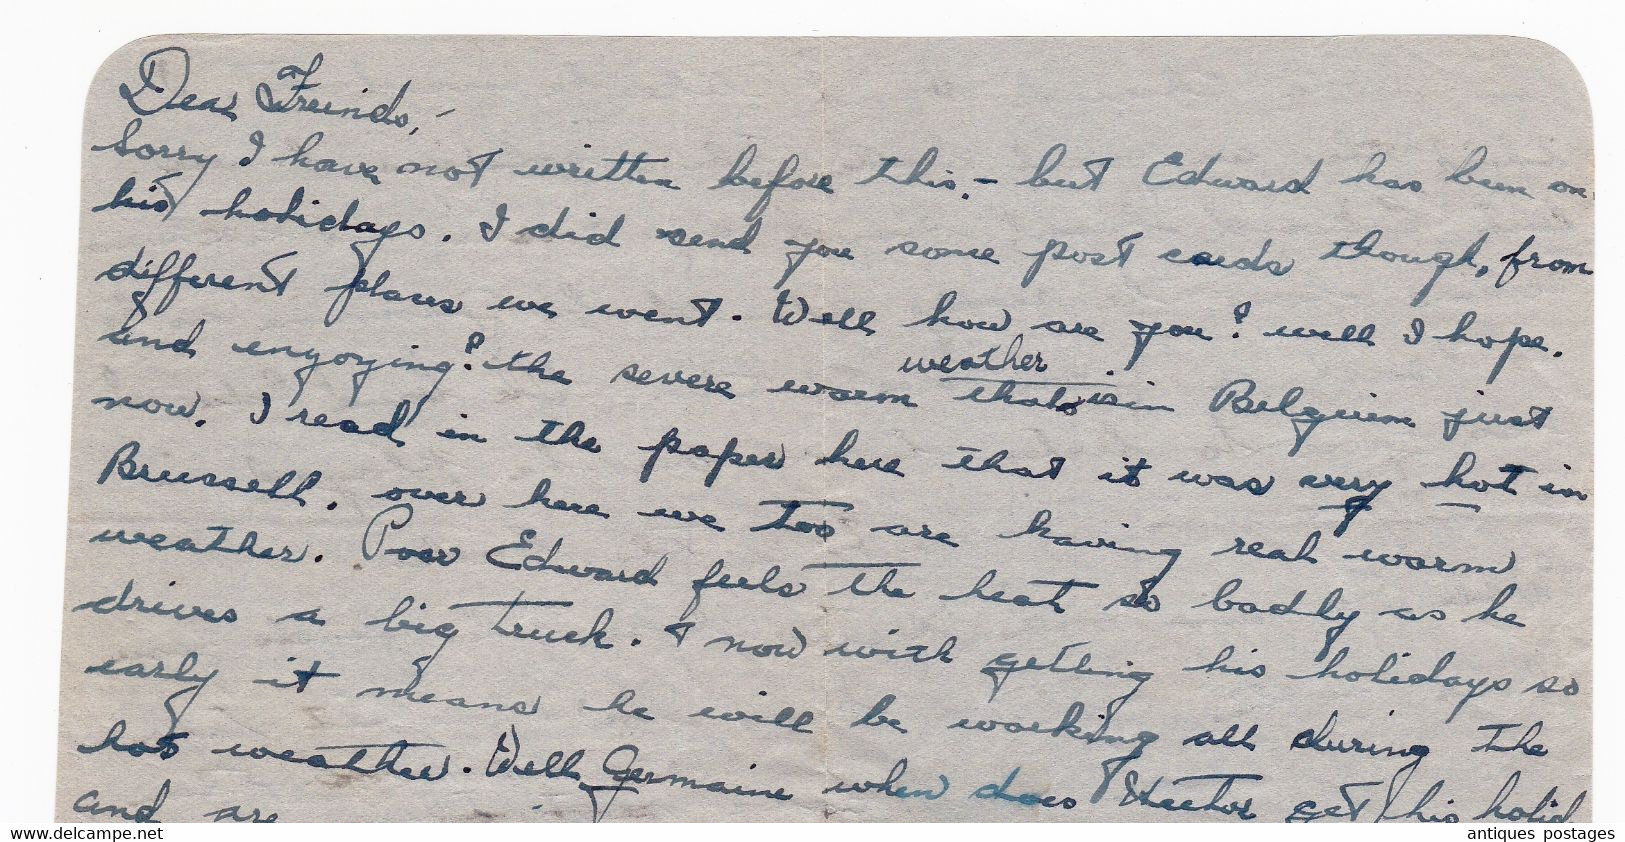 Dear Freinds,-
Sorry I have not written before this. - but Edward has been on
his holidays. I did send you some post cards though, from
different places we went. Well how are you? well I hope.
weather
and enyoying? the severe warm that is in Belguim just
now. I read in the paper here that it was very hot in
Brussell. over here we too are having real warm
weather. Poor Edward feels the heat so badly as he
drives a big truck. & now with getting his holidays so
early it means he will be working all during the
hot weather. Well Germaine when does Hector get his holid
and are
www.delcampe.net
antiques postages